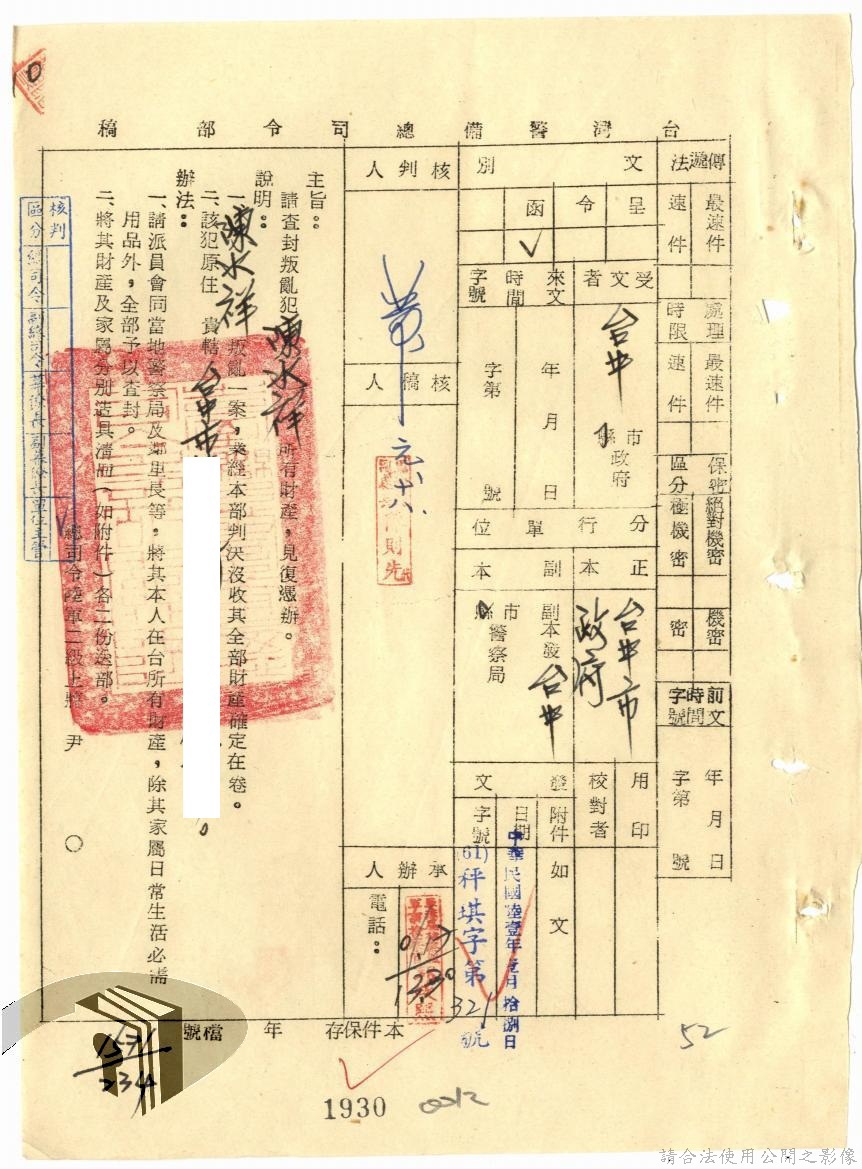 台灣警備總司令部稿
傳遞法
最速件
速件
處理時限
最速件
速件
保密區分
絕對機密
極機密
機密
密
前文時間字號
年月日
字第 號
文別
呈
令
函
✓
受文者
台中市縣政府
來文時間字號
年月日
字第 號
分行單位
正本
副本
台中市政府
副本發台中市縣警察局
用印
校對者
發文
附件
如文
日期
中華民國陸壹年壹月拾捌日
字號
(61)秤琪字第321號
核判人
核稿人
元.十八.
則先
承辦人
電話：
0.17
1330
主旨：
請查封叛亂犯陳水祥所有財產，見復憑辦。
說明：
一、陳水祥叛亂一案，業經本部判決沒收其全部財產確定在卷。
二、該犯原住 貴轄台中市
辦法：
一、請派員會同當地警察局及鄰里長等，將其本人在台所有財產，除其家屬日常生活必需
用品外，全部予以查封。
二、將其財產及家屬分別造具清冊（如附件）各二份送部。
總司令陸軍二級上將 尹 ○
核判區分
總司令
副總司令
參謀長
副參謀長
單位主管
✓
本件保存 年
檔號
1571
234
1930
0012
52
10
請合法使用公開之影像